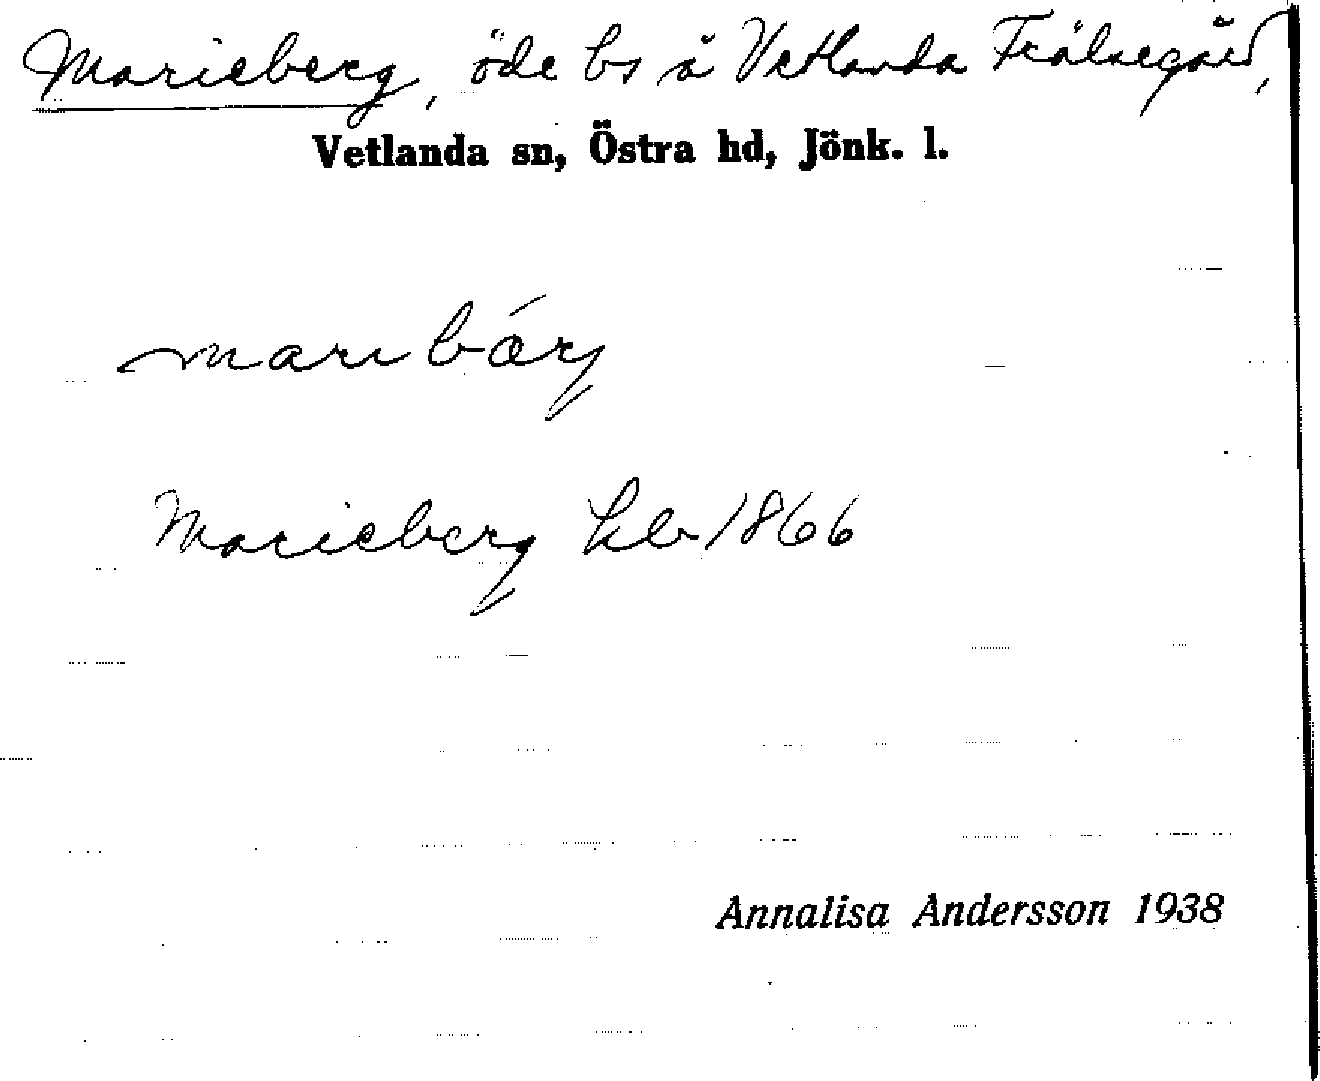 Marieberg, öde bs å Vetlanda Frälsegård,
Vetlanda sn, Östra hd, Jönk. l.
maribǽrj
Marieberg hlr 1866
Annalisa Andersson 1938